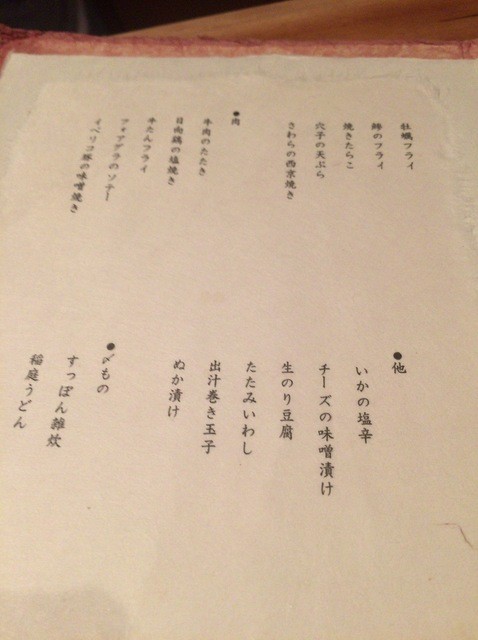 牡蠣フライ
鯵のフライ
焼きたらこ
穴子の天ぷら
さわらの西京焼き
●肉
牛肉のたたき
日向鶏の塩焼き
牛たんフライ
フォアグラのソテー
イベリコ豚の味噌焼き
●他
いかの塩辛
チーズの味噌漬け
生のり豆腐
たたみいわし
出汁巻き玉子
ぬか漬け
●〆もの
すっぽん雑炊
稲庭うどん